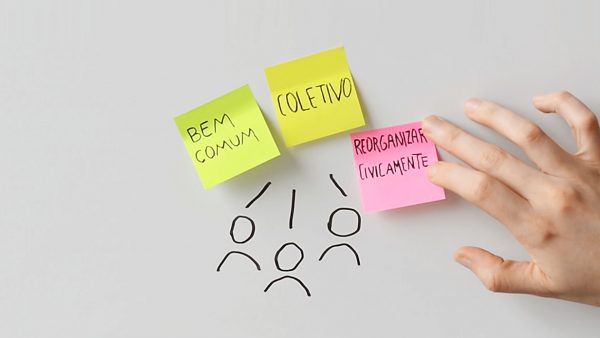 BEM
COMUM
COLETIVO
REORGANIZAR
CIVICAMENTE